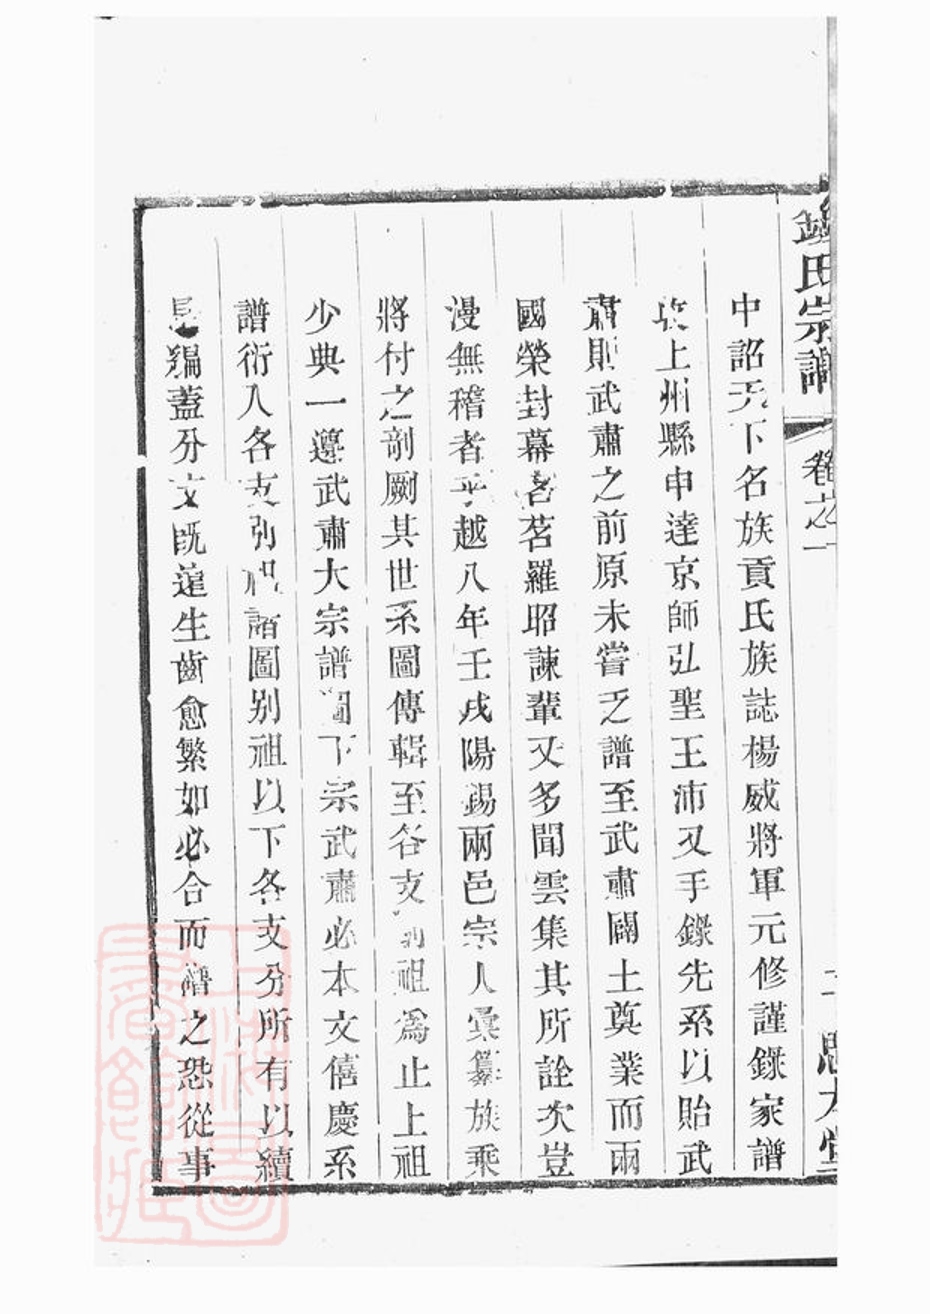 氏宗譜 卷之一 思本堂
中詔天下名族貢氏族誌楊威將軍元修謹錄家譜
上州縣申達京師弘聖王沛又手錄先系以貽武
肅則武肅之前原未嘗乏譜至武肅闢土奠業而兩
國榮封幕客茗羅昭諫輩又多聞雲集其所詮次豈
漫無稽者乎越八年壬戌陽錫兩邑宗人彙纂族乘
將付之剞劂其世系圖傳輯至各支別祖為止上祖
少典一遵武肅大宗譜圖下宗武肅必本文僖慶系
譜衍入各支別祖譜圖別祖以下各支分所有以續
是編蓋分支既遠生齒愈繁如必合而譜之恐從事